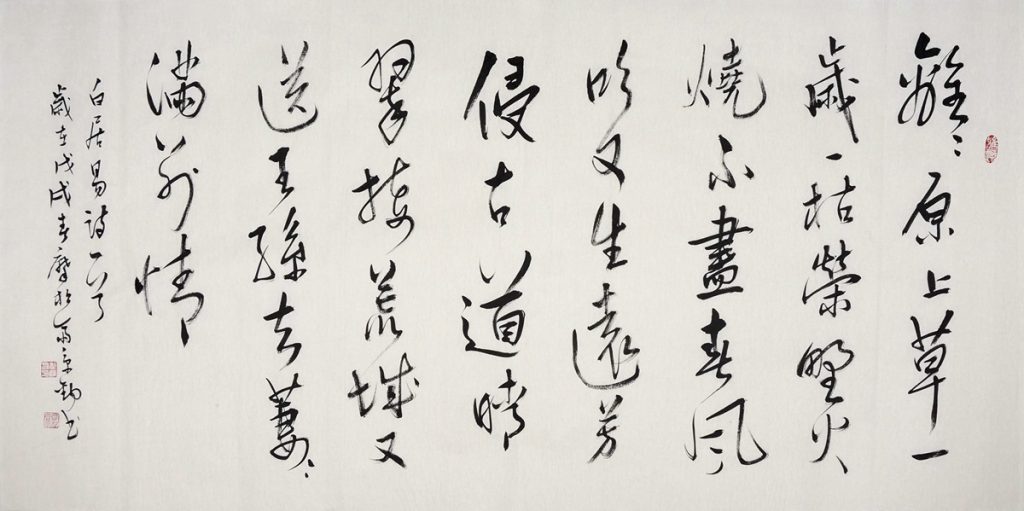 離〻原上草一
歲一枯榮野火
燒不盡春風
吹又生遠芳
侵古道晴
翠接荒城又
送王孫去萋〻
滿別情
白居易詩一首
歲在戊戌春於南京書